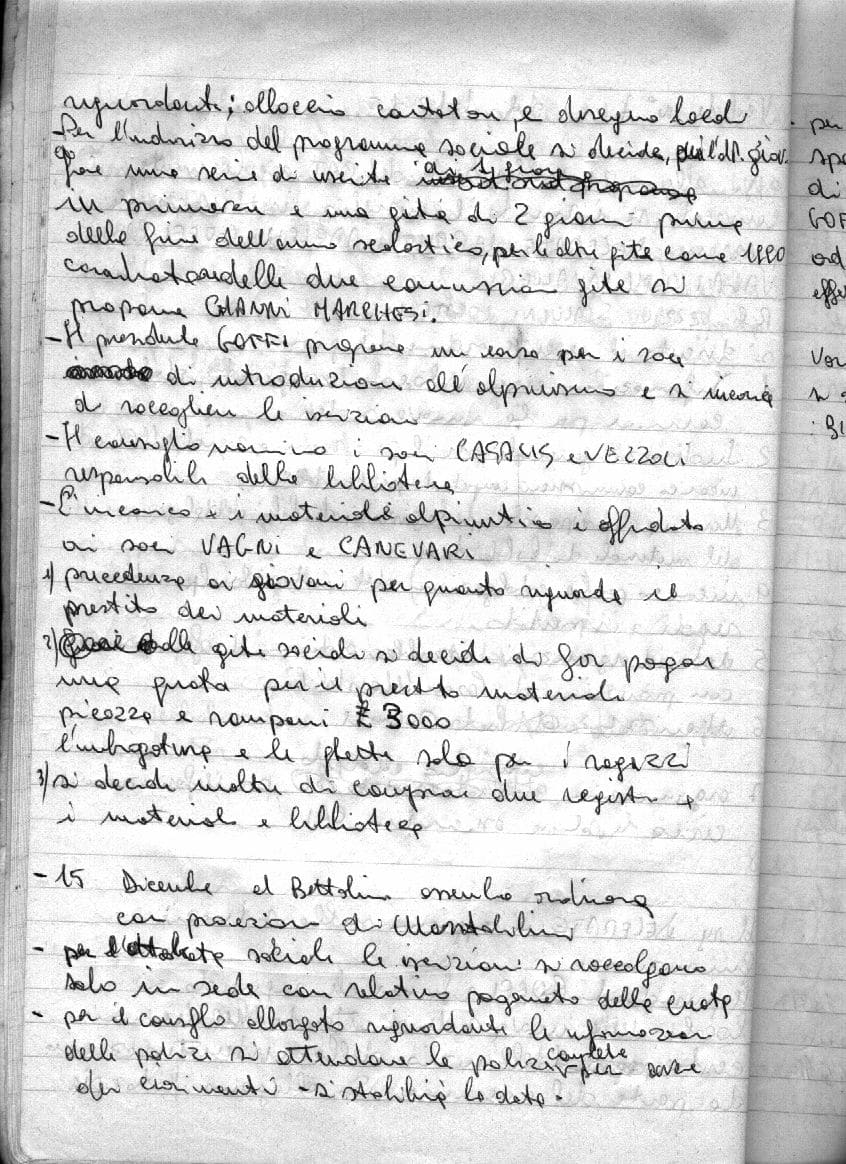 riguardante; allaccio cartelon, e disegno loed
- Per l'indirizzo del programma sociale si decide, per l'alp. giov.
fare una serie di uscite di 1 giorno
in primavera e una gita di 2 giorni prima
della fine dell'anno scolastico, per le altre gite come 1990
coordinatore delle due commission gite si
propone GIANNI MARCHESI.
- Il presidente GOFFI propone un corso per i soci
di introduzione all'alpinismo e si incarica
di raccogliere le iscrizioni
- Il consiglio nomina i soci CASALIS e VEZZOLI
responsabili della biblioteca
- L'incarico i materiale alpinistico è affidato
ai soci VAGNI e CANEVARI
1) precedenza ai giovani per quanto riguarda il
prestito dei materiali
2) alle gite sociali si decide di far pagare
una quota per il prestito materiali
picozza e ramponi £ 3000
l'imbragatura e le ghette solo per i ragazzi
3) si decide inoltre di comprare due registri x
i materiali e biblioteca
- 15 Dicembre al Bettolino assemblea ordinaria
con proiezione di
- per l' sociale le iscrizioni si raccolgono
solo in sede con relativo pagamento della quota
- per il consiglio allargato riguardante le informazioni
delle polizze si attendono le polizze complete per avere
dei chiarimenti - si stabilirà la data.
per
spe
di
GOF
ord
effe
Ver
si
: BI